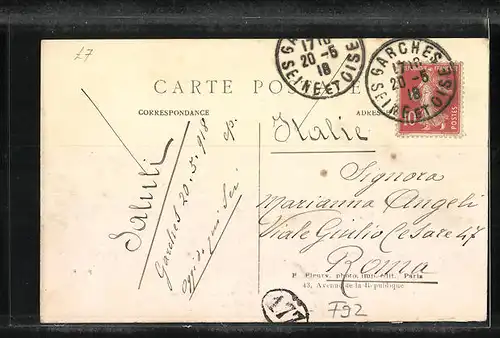 £7
GARCHES
17 10
20 -5
18
SEINE ET OISE
GARCHES
17 10
20 -5
18
SEINE ET OISE
10
POSTES
CARTE POSTALE
CORRESPONDANCE
ADRESSE
Italie
Saluti
Garches 20.5.918
Signora
Marianna Angeli
Viale Giulio Cesare 47
Roma
F. Fleury, phot. imp. edit. Paris
43, Avenue de la République
177
F92